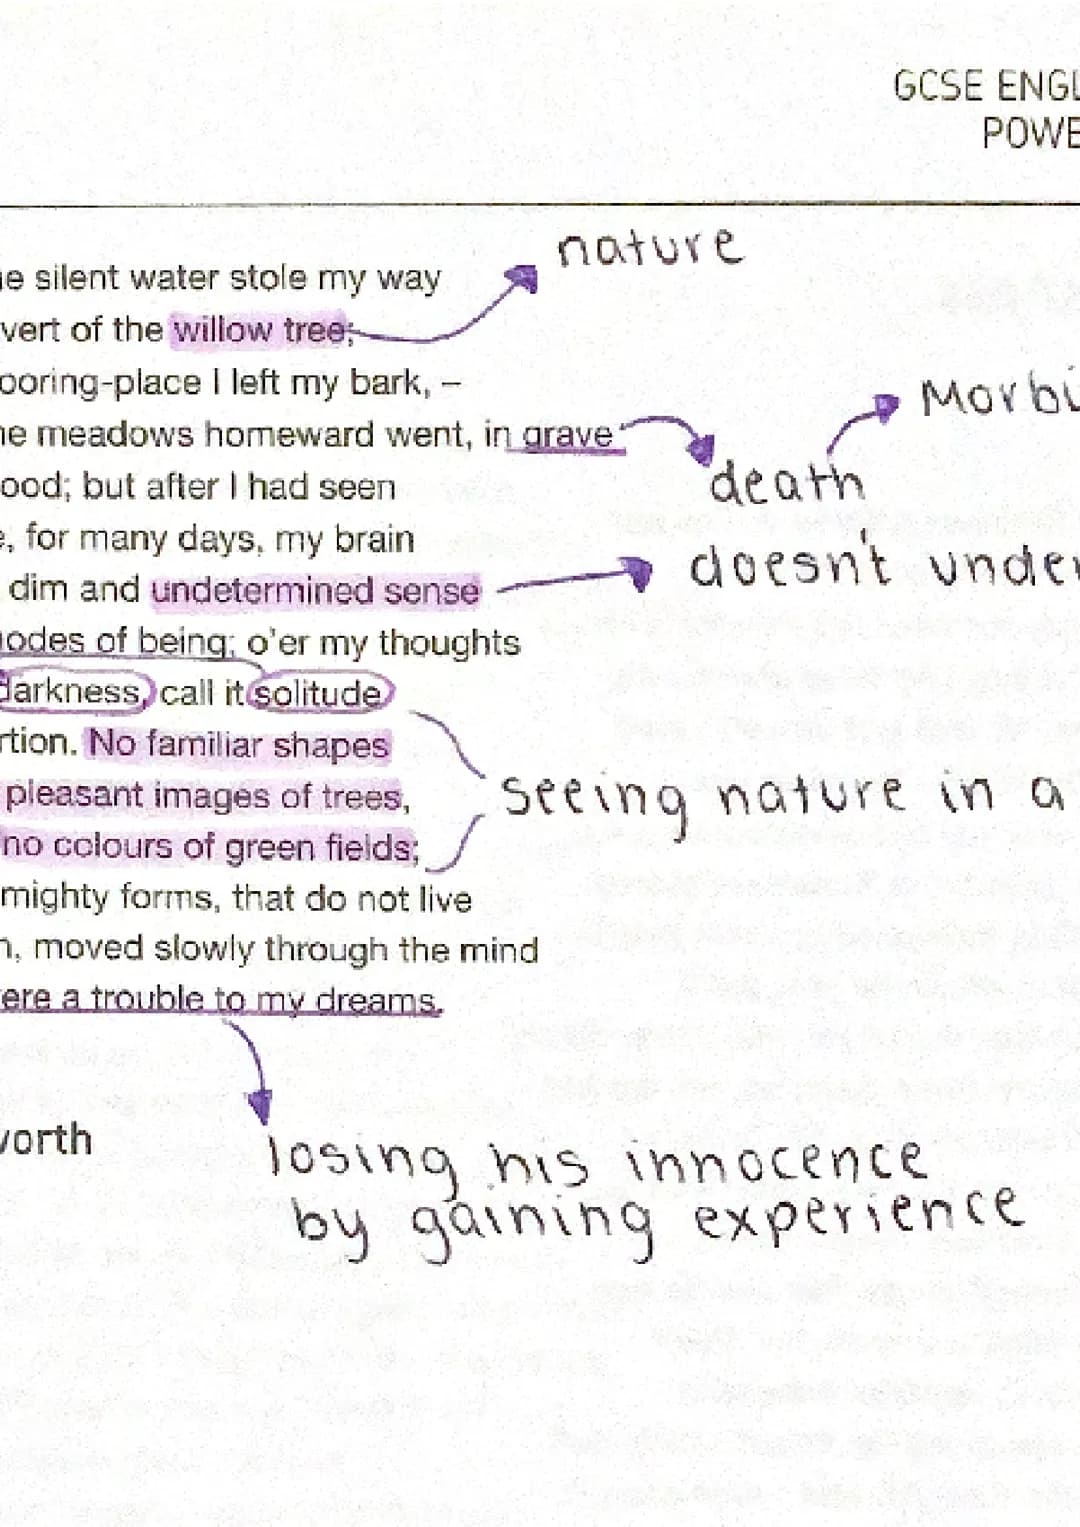 GCSE ENGL
POWE
nature
he silent water stole my way
vert of the willow tree;
ooring-place I left my bark, –
he meadows homeward went, in grave
Morbi
death
ood; but after I had seen
e, for many days, my brain
dim and undetermined sense
doesn't under
odes of being; o'er my thoughts
darkness, call it solitude
rtion. No familiar shapes
pleasant images of trees,
seeing nature in a
no colours of green fields;
mighty forms, that do not live
n, moved slowly through the mind
ere a trouble to my dreams.
worth
losing his innocence
by gaining experience